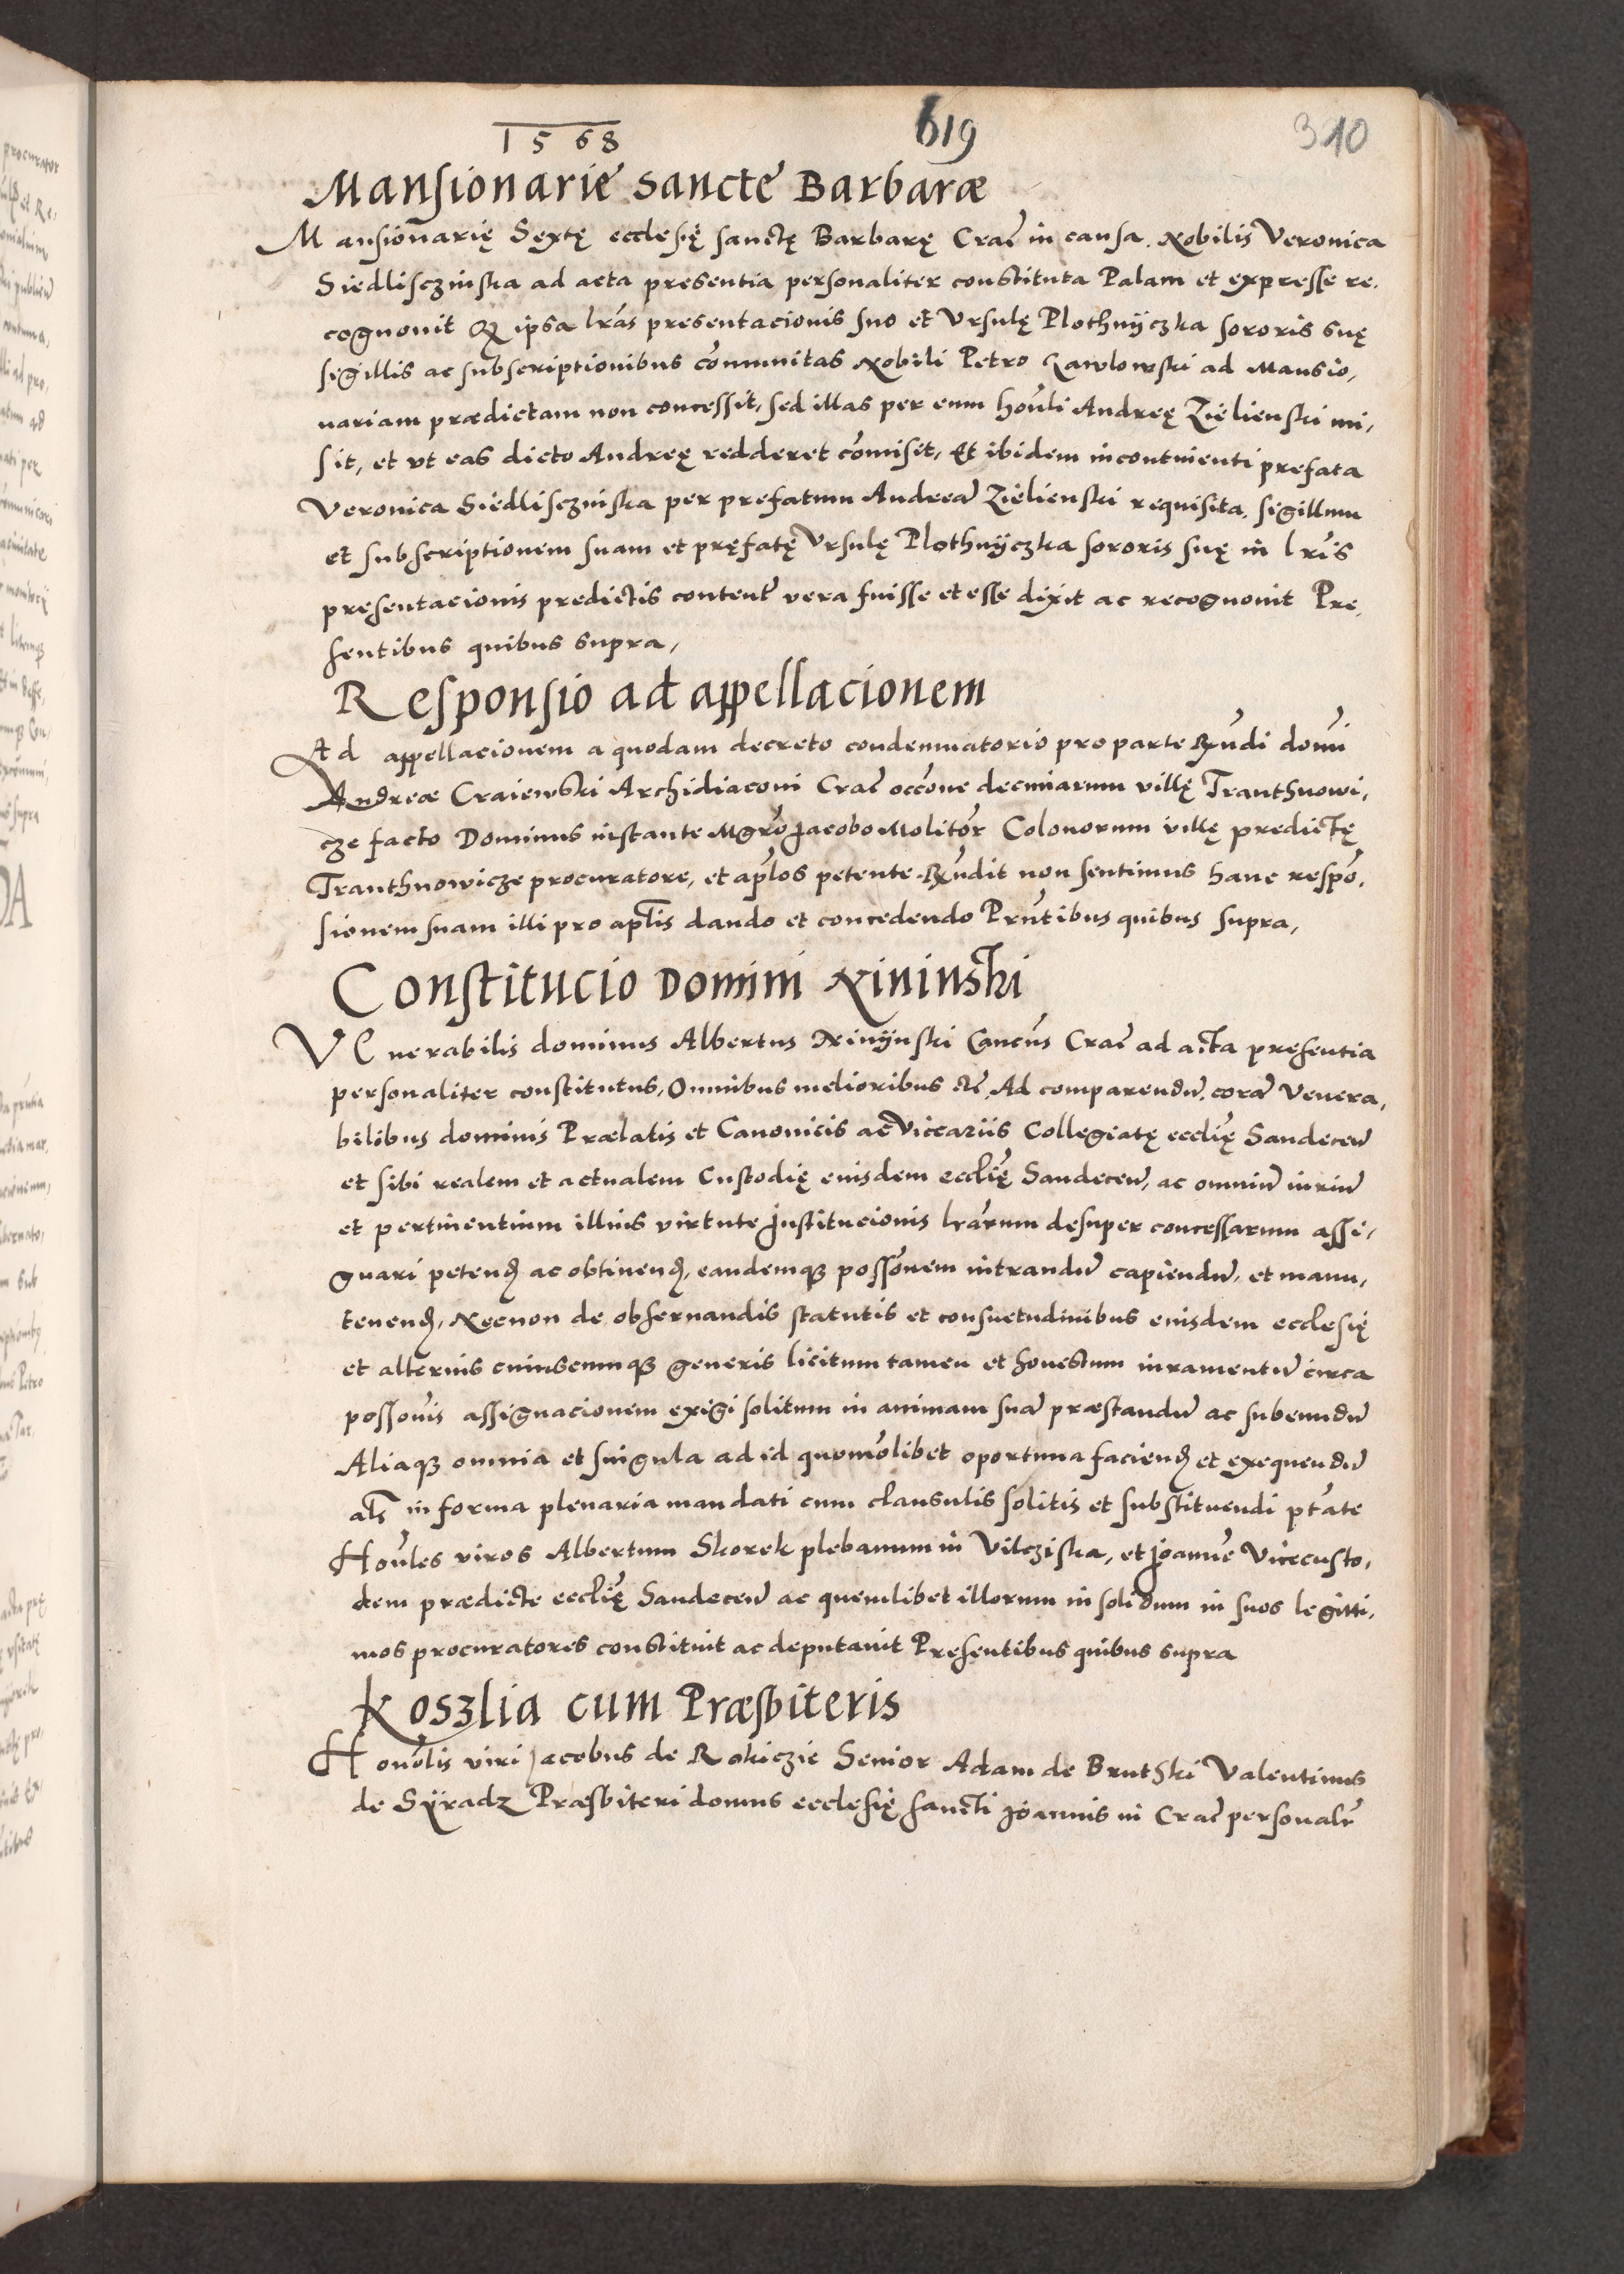 1568
619
310
Mansionarie sancte Barbaræ
Mansionarię Sextę ecclesię sanctę Barbarę Crac̃ in causa. Nobilis Veronica
Siedlisczinska ad acta presentia personaliter constituta Palam et expresse re,
cognouit Qz ipsa lr̃as presentacionis suo et Vrsulę Plothnÿczka sororis suę
sigillis ac subscriptionibus cõmunitas Nobili Petro Zawlowski ad Mansio,
nariam prædictam non concessit, sed illas per eum honl̃i Andreę Zielienski mi,
sit, et vt eas dicto Andreę redderet cõmisit, Et ibidem incontinenti prefata
Veronica Siedlisczinska per prefatum Andreã Zielienski requisita, sigillum
et subscriptionem suam et pręfatę Vrsulę Plothnÿczka sororis suę in lr̃is
presentacionis predictis content̃ vera fuisse et esse dixit ac recognouit Pre,
sentibus quibus supra,
Responsio ad appellacionem
Ad appellacionem a quodam decreto condemnatorio pro parte Rx̃ndi domĩ
Andreæ Craiewski Archidiaconi Crac̃ occõne decimarum villę Tranthnowi,
cze facto Dominus instante Mgr̃o Jacobo Molitor̃ Colonorum villę predictę
Tranthnowicze procuratore, et apl̃os petente Rx̃ndit non sentimus hanc respõ,
sionem suam illi pro apl̃is dando et concedendo Prñtibus quibus supra,
Constitucio Domini Nininski
VEnerabilis dominus Albertus Ninÿnski Cancñs Crac̃ ad acta presentia
personaliter constitutus, Omnibus melioribus etc̃, Ad comparendũ, corã Venera,
bilibus dominis Prælatis et Canonicis ac Viccariis Collegiatę ecclię̃ Sandeceñ
et sibi realem et actualem Custodię eiusdem ecclię̃ Sandeceñ, ac omniũ iuriũ
et pertinentium illius virtute Institucionis lr̃arum desuper concessarum assi,
gnari petend̃ ac obtinend̃, eandemqz possõnem intrandũ capiendũ, et manu,
tenend̃, Necnon de obseruandis statutis et consuetudinibus eiusdem ecclesię
et alterius cuiuscumqz generis licitum tamen et honestum iuramentũ circa
possonĩs assignacionem exigi solitum in animam suã præstandũ ac subeundũ
Aliaqz omnia et singula ad id quomõlibet oportuna faciend̃ et exequendũ
al̃s in forma plenaria mandati cum clausulis solitis et substituendi pt̃ate
Honl̃es viros Albertum Skorek plebanum in Vilcziska, et Joannẽ Vicecusto,
dem prædicte ecclię̃ Sandeceñ ac quemlibet illorum in solidum in suos legitti,
mos procuratores constituit ac deputauit Presentibus quibus supra
Koszlia cum Præsbiteris
Honol̃is viri Jacobus de Rokiczie Senior Adam de Brutski Valentinus
de Sÿradz Præsbiteri domus ecclesię sancti Joannis in Crac̃ personalr̃